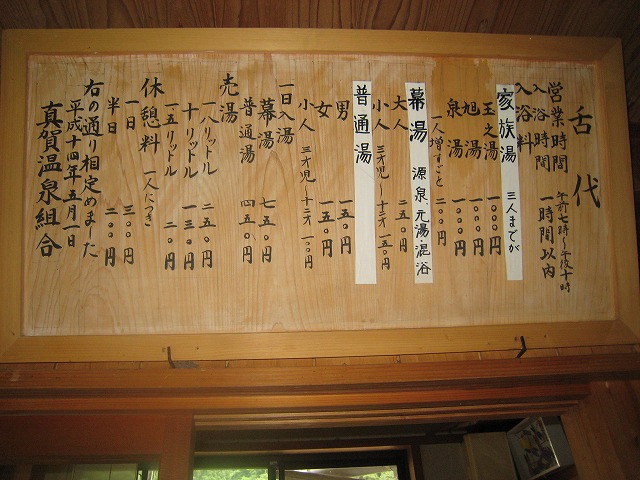 舌代
営業時間 午前七時〜午後十時
入浴時間 一時間以内
入浴料
家族湯 三人までが
玉之湯 一〇〇〇円
旭湯 一〇〇〇円
泉湯 一〇〇〇円
一人増すごと 二〇〇円
幕湯 源泉、元湯・混浴
大人 二五〇円
小人 三才児〜十二才 一五〇円
普通湯
男 一五〇円
女 一五〇円
小人 三才児〜十二才 一〇〇円
一日入湯
幕湯 七五〇円
普通湯 四五〇円
売湯
一八リットル 二五〇円
十リットル 一三〇円
一五リットル 二〇円
休憩料 一人につき
一日 三〇〇円
半日 二〇〇円
右の通り相定めました
平成十四年五月一日
真賀温泉組合